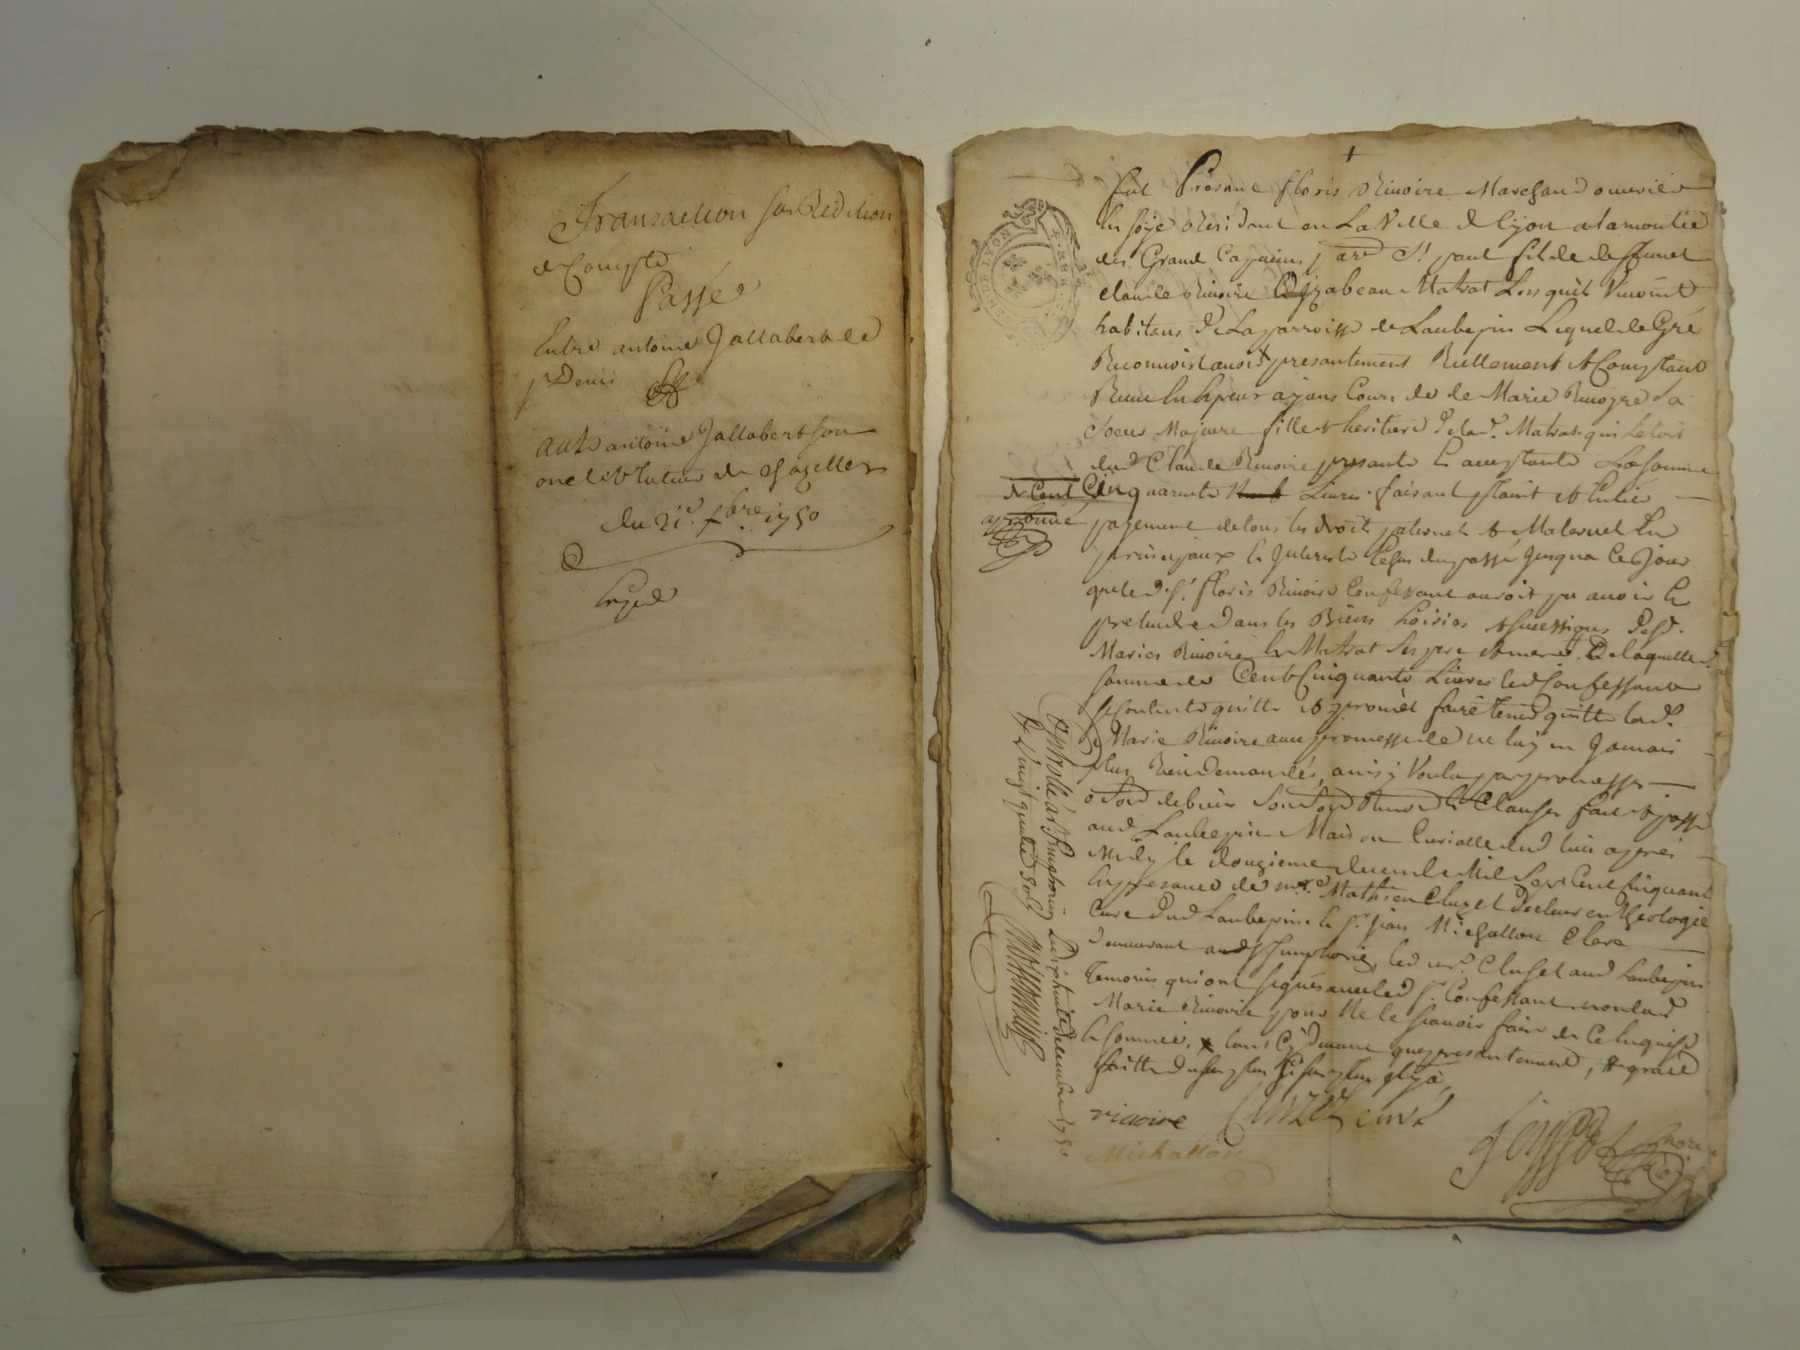 Transaction sur Redition
de Compte
Passée
Entre antoine Jallabert de
St Denis
Et
autre antoine Jallabert son
oncle & tuteur de Chazelles
du 21e. 7bre. 1750
Fut Presant floris Rivoire Marchand ouvrier
En soÿe Residant en La Ville de Lÿon a la montée
des Grand Capucins parr St paul fils de deffunct
claude Rivoire Elizabeau Matrat Lesquels Vivoint
habitans de La parroisse de Laubepin Lequel de Gré
Reconnoist avoir presantement Reellement & Comptant
Receu En Espeur aÿans Cours de de Marie Rivoyre sa
soeur Majeure fille & heritiere de lad. Matrat
dud Claude Rivoire presante & acceptante La somme
de Cent Cinquante Livres faisant & Entier
payement de tous les droit paternel & Maternel En
principaux & Interests Echus du passé Jusqua Ce Jour
que led. sr. floris Rivoire Confessant auroit pu avoir &
pretendre Dans les Biens hoiries & successions desd.
Maries Rivoire & Matrat ses pere & mere. De laquelle
somme de Cent Cinquante Livres led Confessant
se Contente quitte & promet faire tenir quitte lad.
Marie Rivoire avec promesse de ne luÿ en Jamais
plus Rien Demander, ainsÿ Voulu par promesse
de biens Clauses fait & passé
aud Laubepin Maison Curialle dud lieu après
Midy le douzieme decembre Mil Sept Cent Cinquante
En presance de mre. Mathieu Cluzel Docteur en theologie
Curé Dud Laubepin & sr. jean Michallon Clerc
Demeurant aud St Simphorien, led mr. Cluzel aud Laubepin
Temoins qui ont signés avec led sr. Confessant non lad
Marie Rivoire pour Ne le scavoir faire de Ce Enquise
& sommée.
rivoire Cluzel curé
Michallon
Controllé a St Simphorien Le dixhuit decembre 1750
Rc Vingt quatre sols